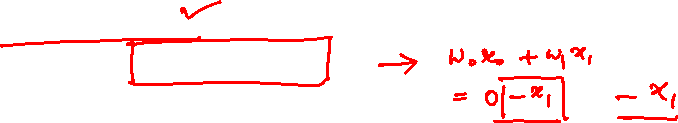 → w₀x₀ + w₁x₁
= 0 -x₁ -x₁